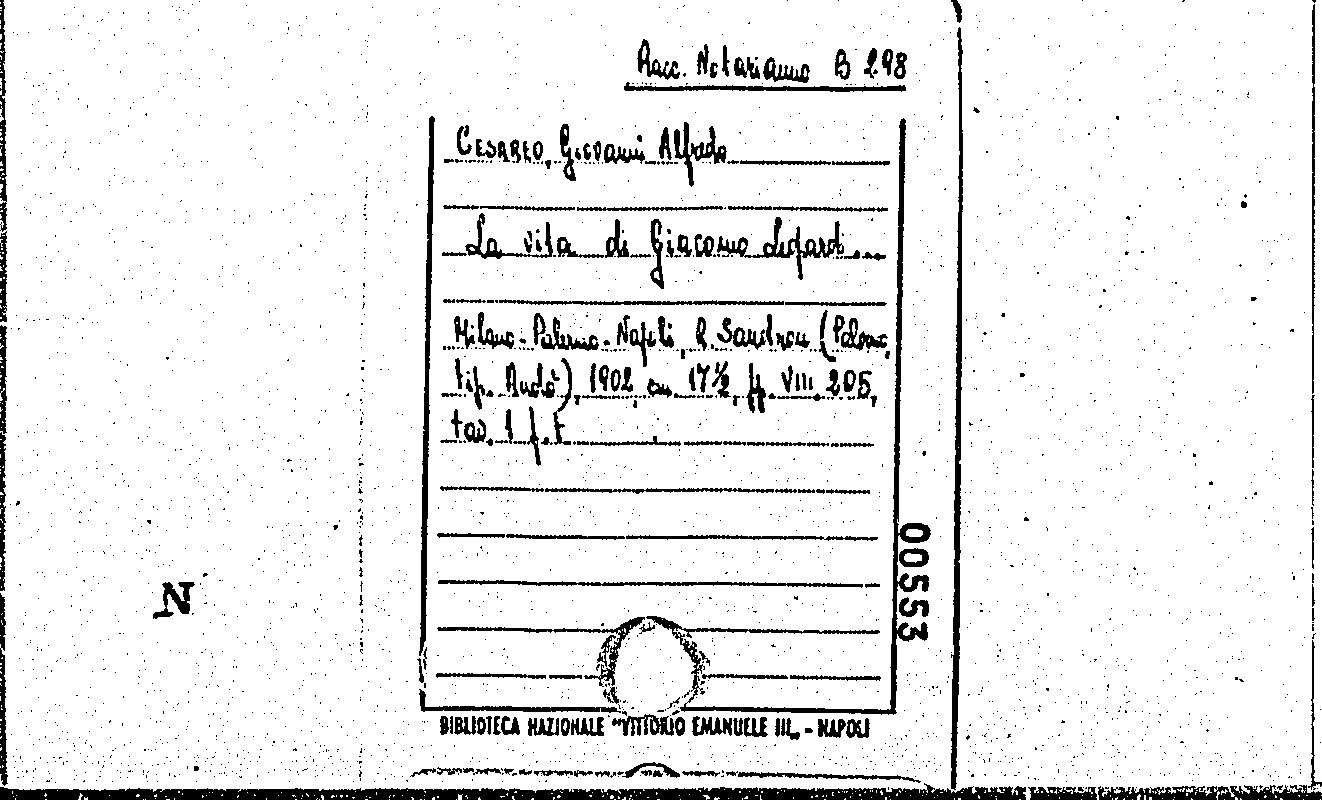 Racc. Notarianno B 298
CESAREO, Giovanni Alfredo
La vita di Giacomo Leopardi...
Milano - Palermo - Napoli, R. Sandron (Palermo,
tip. Andò), 1902, cm. 17½, pp. VIII. 205,
tav. 1 f. t.
00553
N
BIBLIOTECA NAZIONALE "VITTORIO EMANUELE III„ - NAPOLI